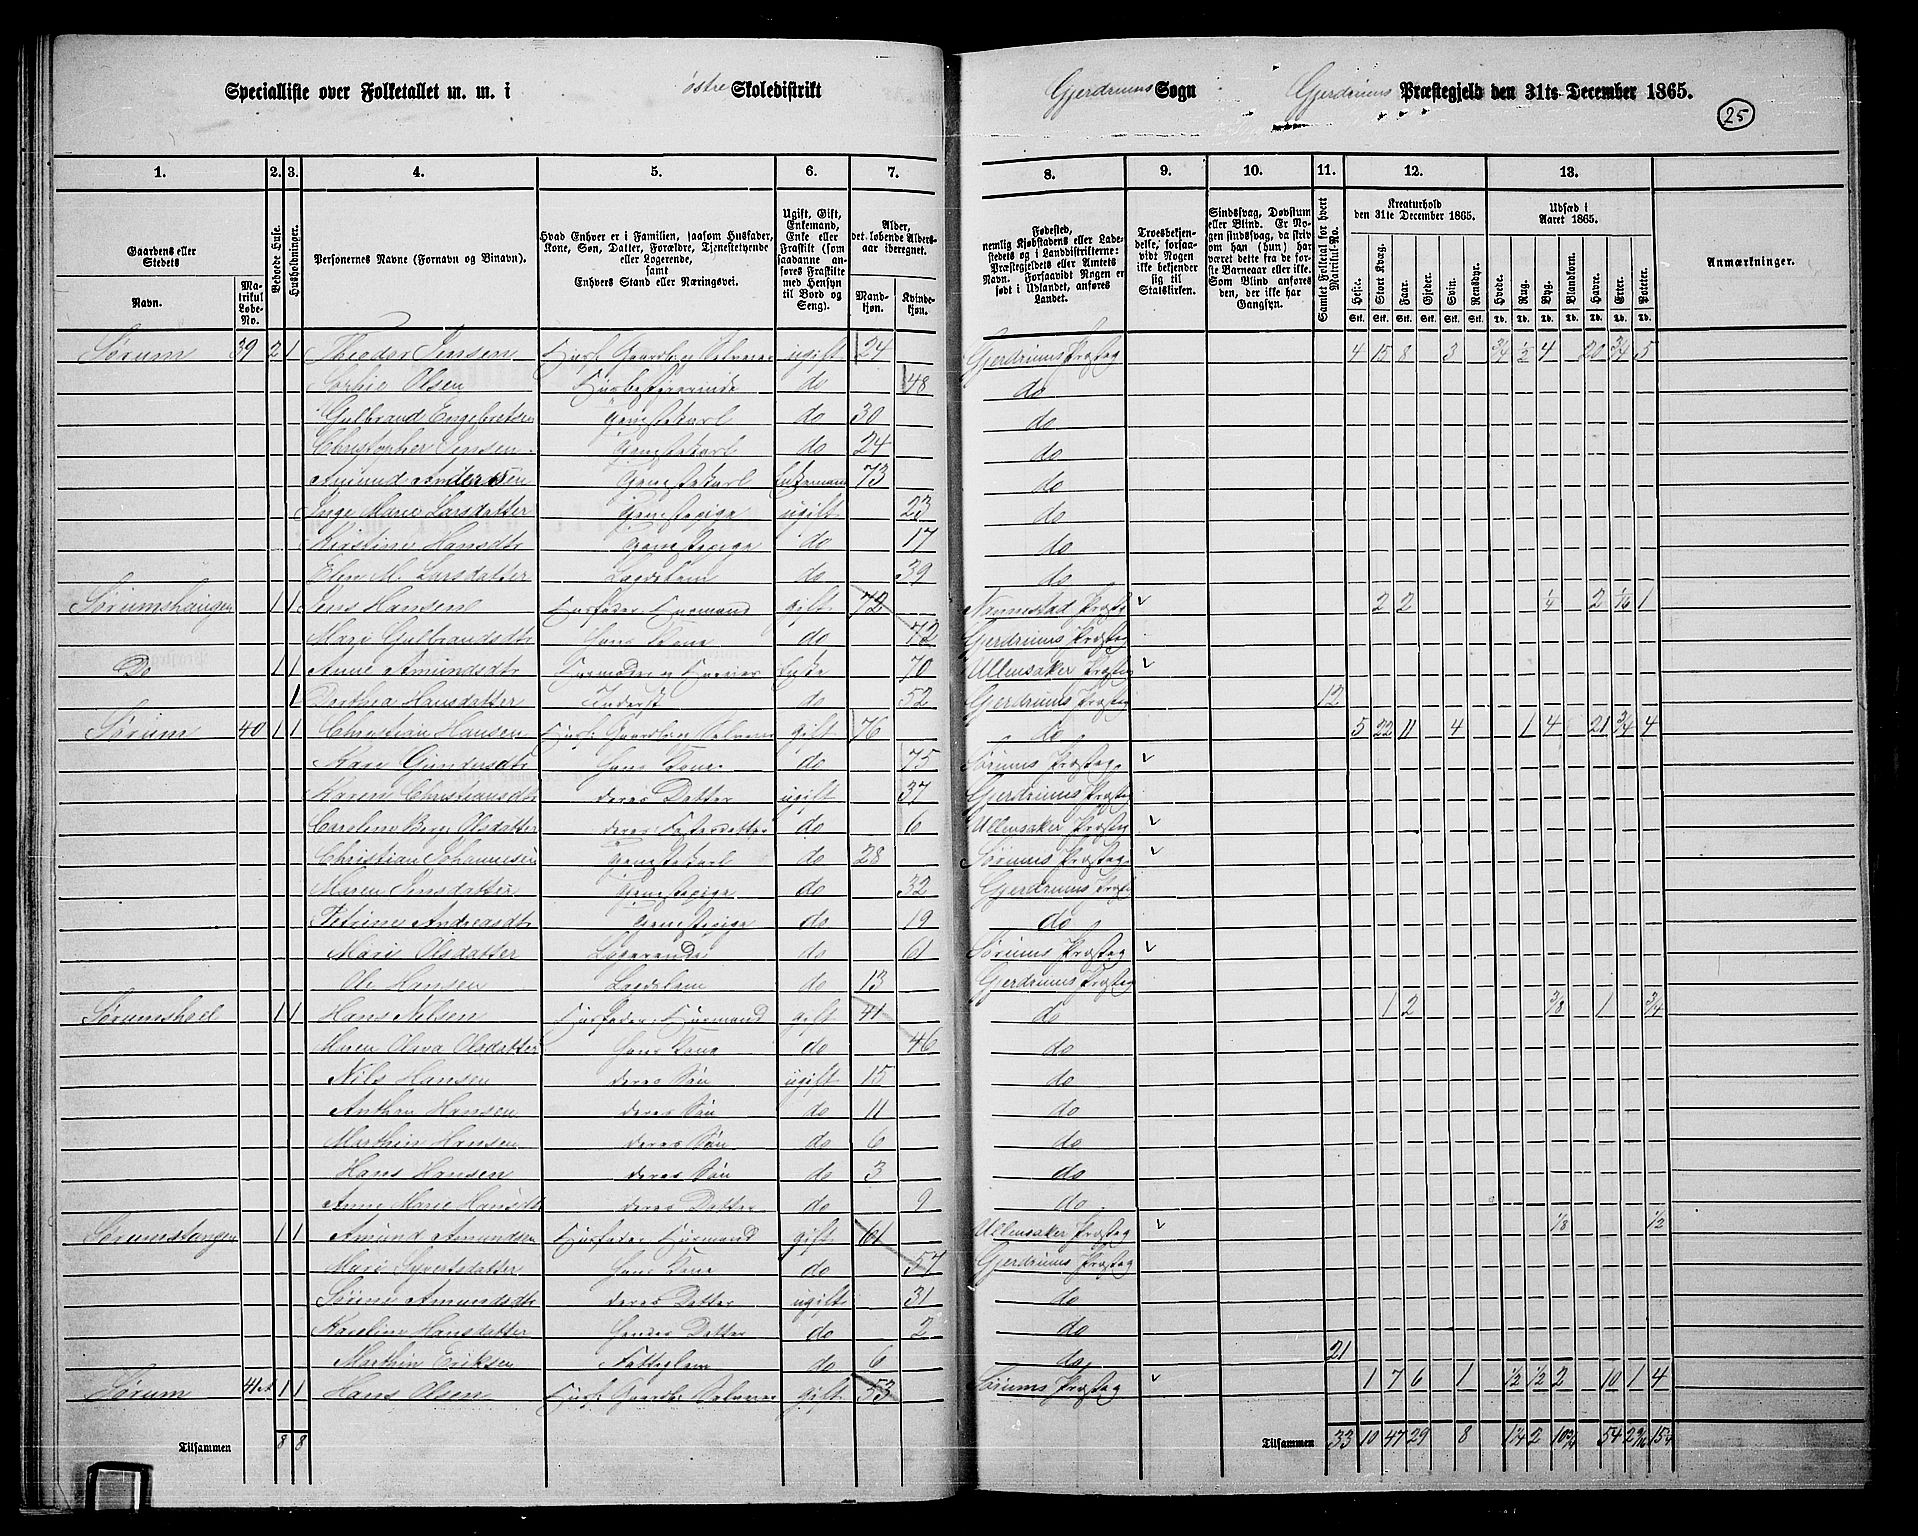 Specialliste over Folketallet m. m. i østre Skoledistrikt Gjerdrums Sogn Gjerdrums Præstegjeld den 31te December 1865.
25
1. 2. 3. 4. 5. 6. 7. 8. 9. 10. 11. 12. 13.
Gaardens eller Stedets
Navn.
Matrikul Løbe-No.
Beboede Huse.
Husholdninger.
Personernes Navne (Fornavn og Binavn).
Hvad Enhver er i Familien, saasom Husfader, Kone, Søn, Datter, Forældre, Tjenestetyende eller Logerende, samt Enhvers Stand eller Næringsvei.
Ugift, Gift, Enkemand, Enke eller Fraskilt (som saadanne anføres Fraskilte med Hensyn til Bord og Seng).
Alder, det løbende Aldersaar iberegnet.
Mandkjøn. Kvindekjøn.
Fødested, nemlig Kjøbstadens eller Ladestedets og i Landdistrikterne: Præstegjeldets eller Amtets Navn. Forsaavidt Nogen er født i Udlandet, anføres Landet.
Troesbekjendelse, forsaavidt Nogen ikke bekjender sig til Statskirken.
Sindssvag, Døvstum eller Blind. Er Nogen sindssvag, da skrives om han (hun) har været dette fra de første Barneaar eller ikke. Som Blind anføres den, der ikke har Gangsyn.
Samlet Folketal for hvert Matrikul-No.
Kreaturhold den 31te December 1865.
Heste. Stort Kvæg. Faar. Gjeder. Svin. Rensdyr.
Stk. Stk. Stk. Stk. Stk. Stk.
Udsæd i Aaret 1865.
Hvede. Rug. Byg. Blandkorn. Havre. Erter. Poteter.
Td. Td. Td. Td. Td. Td. Td.
Anmærkninger.
Sørum 39 2 1 Theodor Jensen Husf. Gaardbr. Selveier ugift 24 Gjerdrums Præsteg 4 15 8 3 3/4 1/2 4 20 3/4 5
Sophie Olsen Husbestyrerinde do 48 do
Gulbrand Engebretsen Tjenestekarl do 30 do
Christopher Jensen Tjenestekarl do 24 do
Amund Andersen Tjenestekarl Enkemand 73 do
Inge Marie Larsdatter Tjenestepige ugift 23 do
Kirstine Hansdtr Tjenestepige do 17 do
Elen M. Larsdatter Lægdslem do 39 do
Sørumshaugen 1 1 Jens Hansen Husfader, Husmand gift 72 Nannestad Præsteg 2 2 1/4 2 1/16 1
Mari Gulbrandsdtr Hans Kone do 72 Gjerdrums Præsteg
Do 1 1 Anne Amundsdtr Enke 70 Ullensaker Præsteg
1 Dorthea Hansdatter Inderst do 52 Gjerdrums Præsteg 12
Sørum 40 1 1 Christian Hansen Husf. Gaardbr. Selveier gift 76 do 5 22 11 4 1 4 21 3/4 4
Kari Gundersdtr Hans Kone do 75 Sørums Præsteg.
Karen Christiansdtr deres Datter ugift 37 Gjerdrums Præsteg
Olsdatter deres Fosterdatter do 6 Ullensaker Præsteg
Christian Johannesen Tjenestekarl do 28 Sørums Præsteg.
Maren Jensdatter Tjenestepige do 32 Gjerdrums Præst
Petrine Andreasdtr Tjenestepige do 19 do
Mari Olsdatter Logerende do 61 Sørums Præsteg
Ole Hansen Lægdslem do 13 Gjerdrums Præsteg
Sørumshoel 1 1 Hans Nilsen Husfader, Husmand gift 41 do 1 2 3/8 1 3/4
Maren Olava Olsdatter Hans Kone do 46 do
Nils Hansen deres Søn ugift 15 do
Anthon Hansen deres Søn do 11 do
Marthin Hansen deres Søn do 6 do
Hans Hansen deres Søn do 3 do
Anne Marie Hansdtr deres Datter do 9 do
Sørumstangen 1 1 Amund Amundsen Husfader, Husmand gift 61 Ullensaker Præsteg 1/8 1/2
Mari Syvertsdatter Hans Kone do 57 Gjerdrums Præsteg
Sørine Amundsdtr deres Datter ugift 31 do
Karoline Hansdatter Hendes Datter do 2 do
Marthin Eriksen Fattiglem do 6 do 21
Sørum 41a 1 1 Hans Olsen Husf. Gaardbr. Selveier gift 53 Sørums Præsteg 1 7 6 1 1/2 1/2 2 10 1 4
Tilsammen 8 8 Tilsammen 33 10 47 29 8 1 1/4 2 10 3/4 54 2 9/16 15 1/4